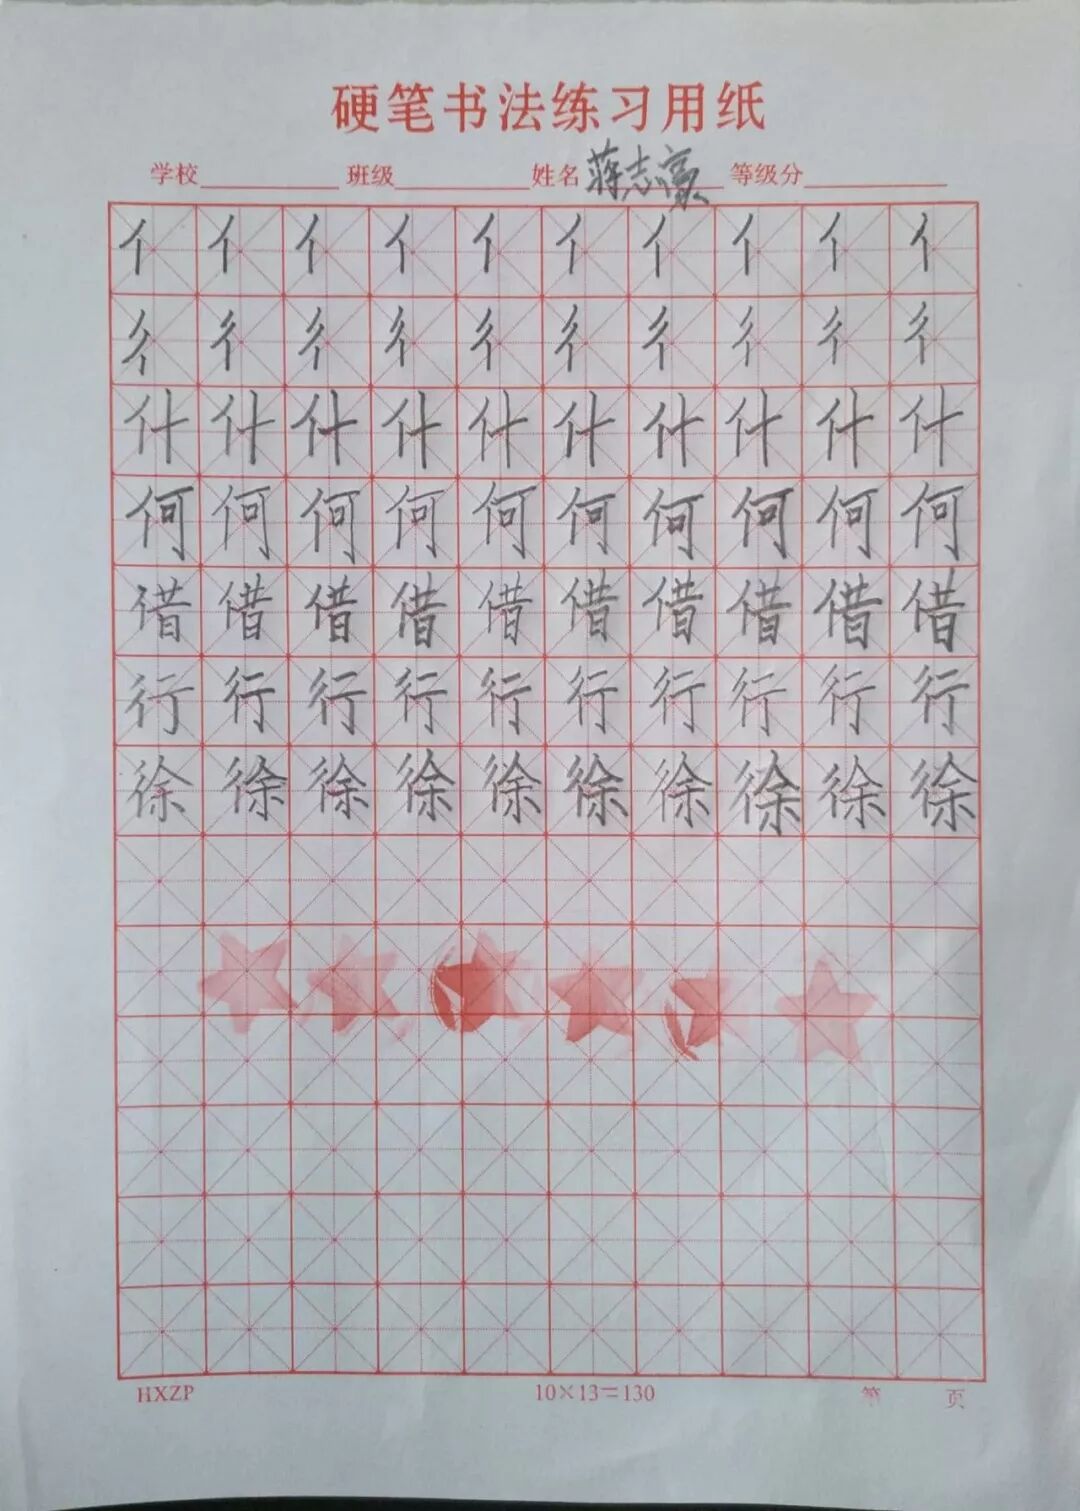 硬笔书法练习用纸
学校 班级 姓名 蒋志豪 等级分
亻亻亻亻亻亻亻亻亻亻
彳彳彳彳彳彳彳彳彳彳
什什什什什什什什什什
何何何何何何何何何何
借借借借借借借借借借
行行行行行行行行行行
徐徐徐徐徐徐徐徐徐徐
HXZP 10×13=130 第 页